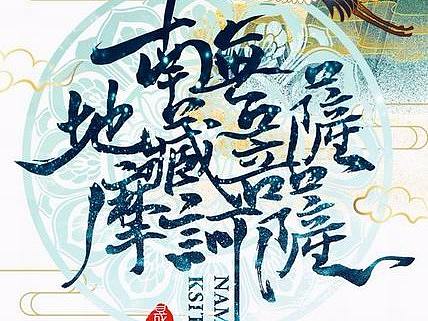 南無
地藏菩薩
摩訶薩
NAM
KSIT